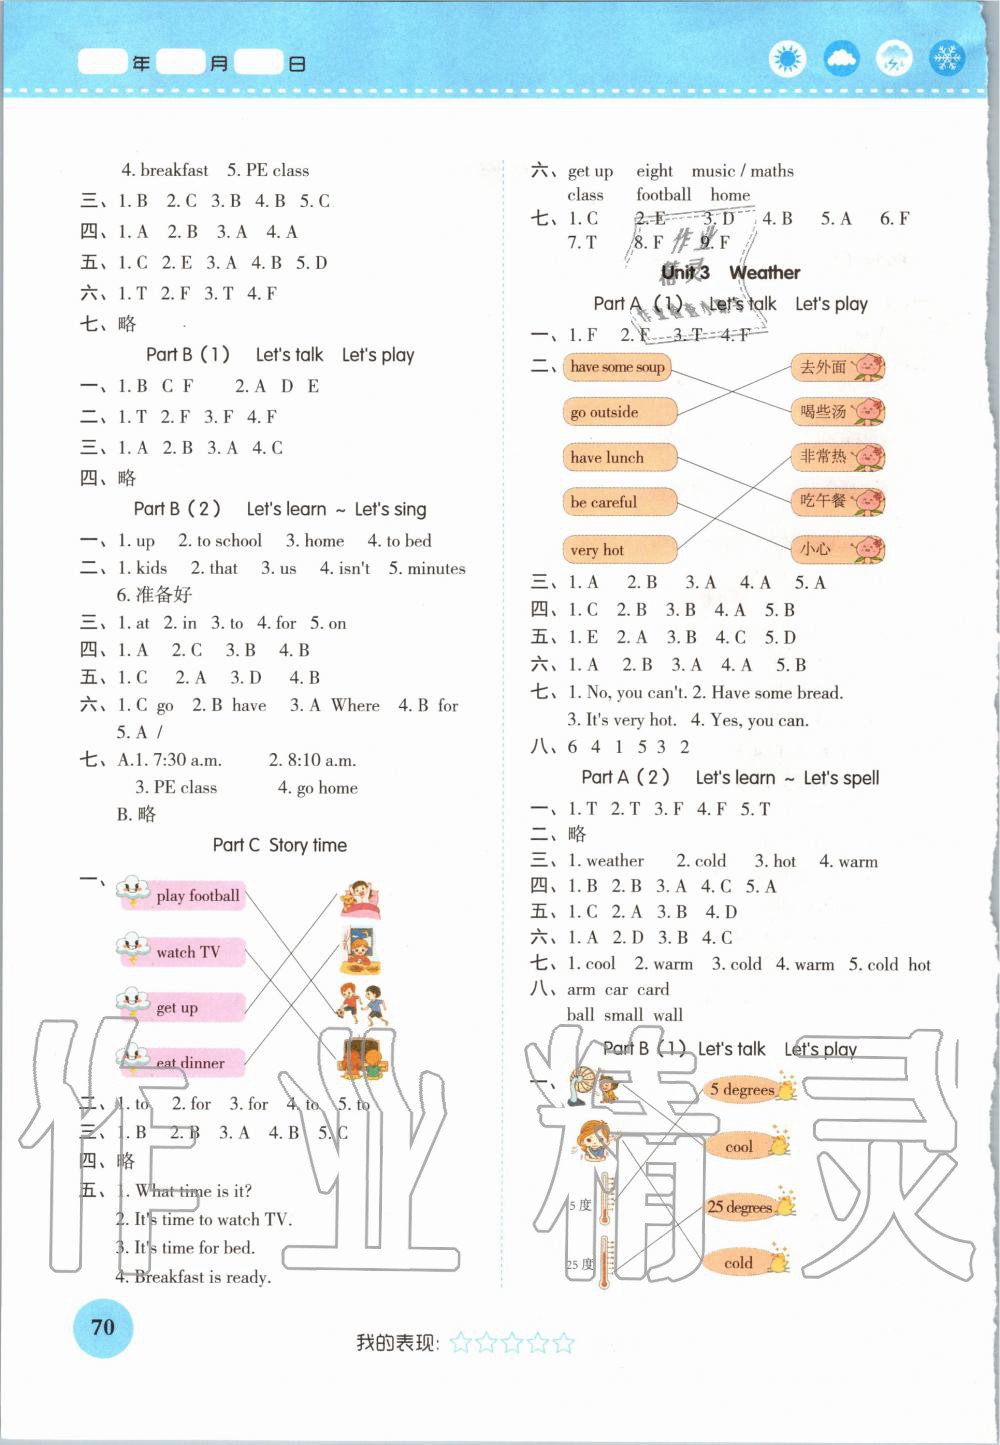 年 月 日
4. breakfast 5. PE class
三、1. B 2. C 3. B 4. B 5. C
四、1. A 2. B 3. A 4. A
五、1. C 2. E 3. A 4. B 5. D
六、1. T 2. F 3. T 4. F
七、略
Part B（1） Let's talk Let's play
一、1. B C F 2. A D E
二、1. T 2. F 3. F 4. F
三、1. A 2. B 3. A 4. C
四、略
Part B（2） Let's learn ~ Let's sing
一、1. up 2. to school 3. home 4. to bed
二、1. kids 2. that 3. us 4. isn't 5. minutes
6. 准备好
三、1. at 2. in 3. to 4. for 5. on
四、1. A 2. C 3. B 4. B
五、1. C 2. A 3. D 4. B
六、1. C go 2. B have 3. A Where 4. B for
5. A /
七、A. 1. 7:30 a.m. 2. 8:10 a.m.
3. PE class 4. go home
B. 略
Part C Story time
一、
play football
watch TV
get up
eat dinner
二、1. to 2. for 3. for 4. to 5. to
三、1. B 2. B 3. A 4. B 5. C
四、略
五、1. What time is it?
2. It's time to watch TV.
3. It's time for bed.
4. Breakfast is ready.
六、get up eight music / maths
class football home
七、1. C 2. E 3. D 4. B 5. A 6. F
7. T 8. F 9. F
Unit 3 Weather
Part A（1） Let's talk Let's play
一、1. F 2. F 3. T 4. F
二、
have some soup 去外面
go outside 喝些汤
have lunch 非常热
be careful 吃午餐
very hot 小心
三、1. A 2. B 3. A 4. A 5. A
四、1. C 2. B 3. B 4. A 5. B
五、1. E 2. A 3. B 4. C 5. D
六、1. A 2. B 3. A 4. A 5. B
七、1. No, you can't. 2. Have some bread.
3. It's very hot. 4. Yes, you can.
八、6 4 1 5 3 2
Part A（2） Let's learn ~ Let's spell
一、1. T 2. T 3. F 4. F 5. T
二、略
三、1. weather 2. cold 3. hot 4. warm
四、1. B 2. B 3. A 4. C 5. A
五、1. C 2. A 3. B 4. D
六、1. A 2. D 3. B 4. C
七、1. cool 2. warm 3. cold 4. warm 5. cold hot
八、arm car card
ball small wall
Part B（1） Let's talk Let's play
一、
5 degrees
cool
5度 25 degrees
25度 cold
70
我的表现:
作业精灵
作业
精灵